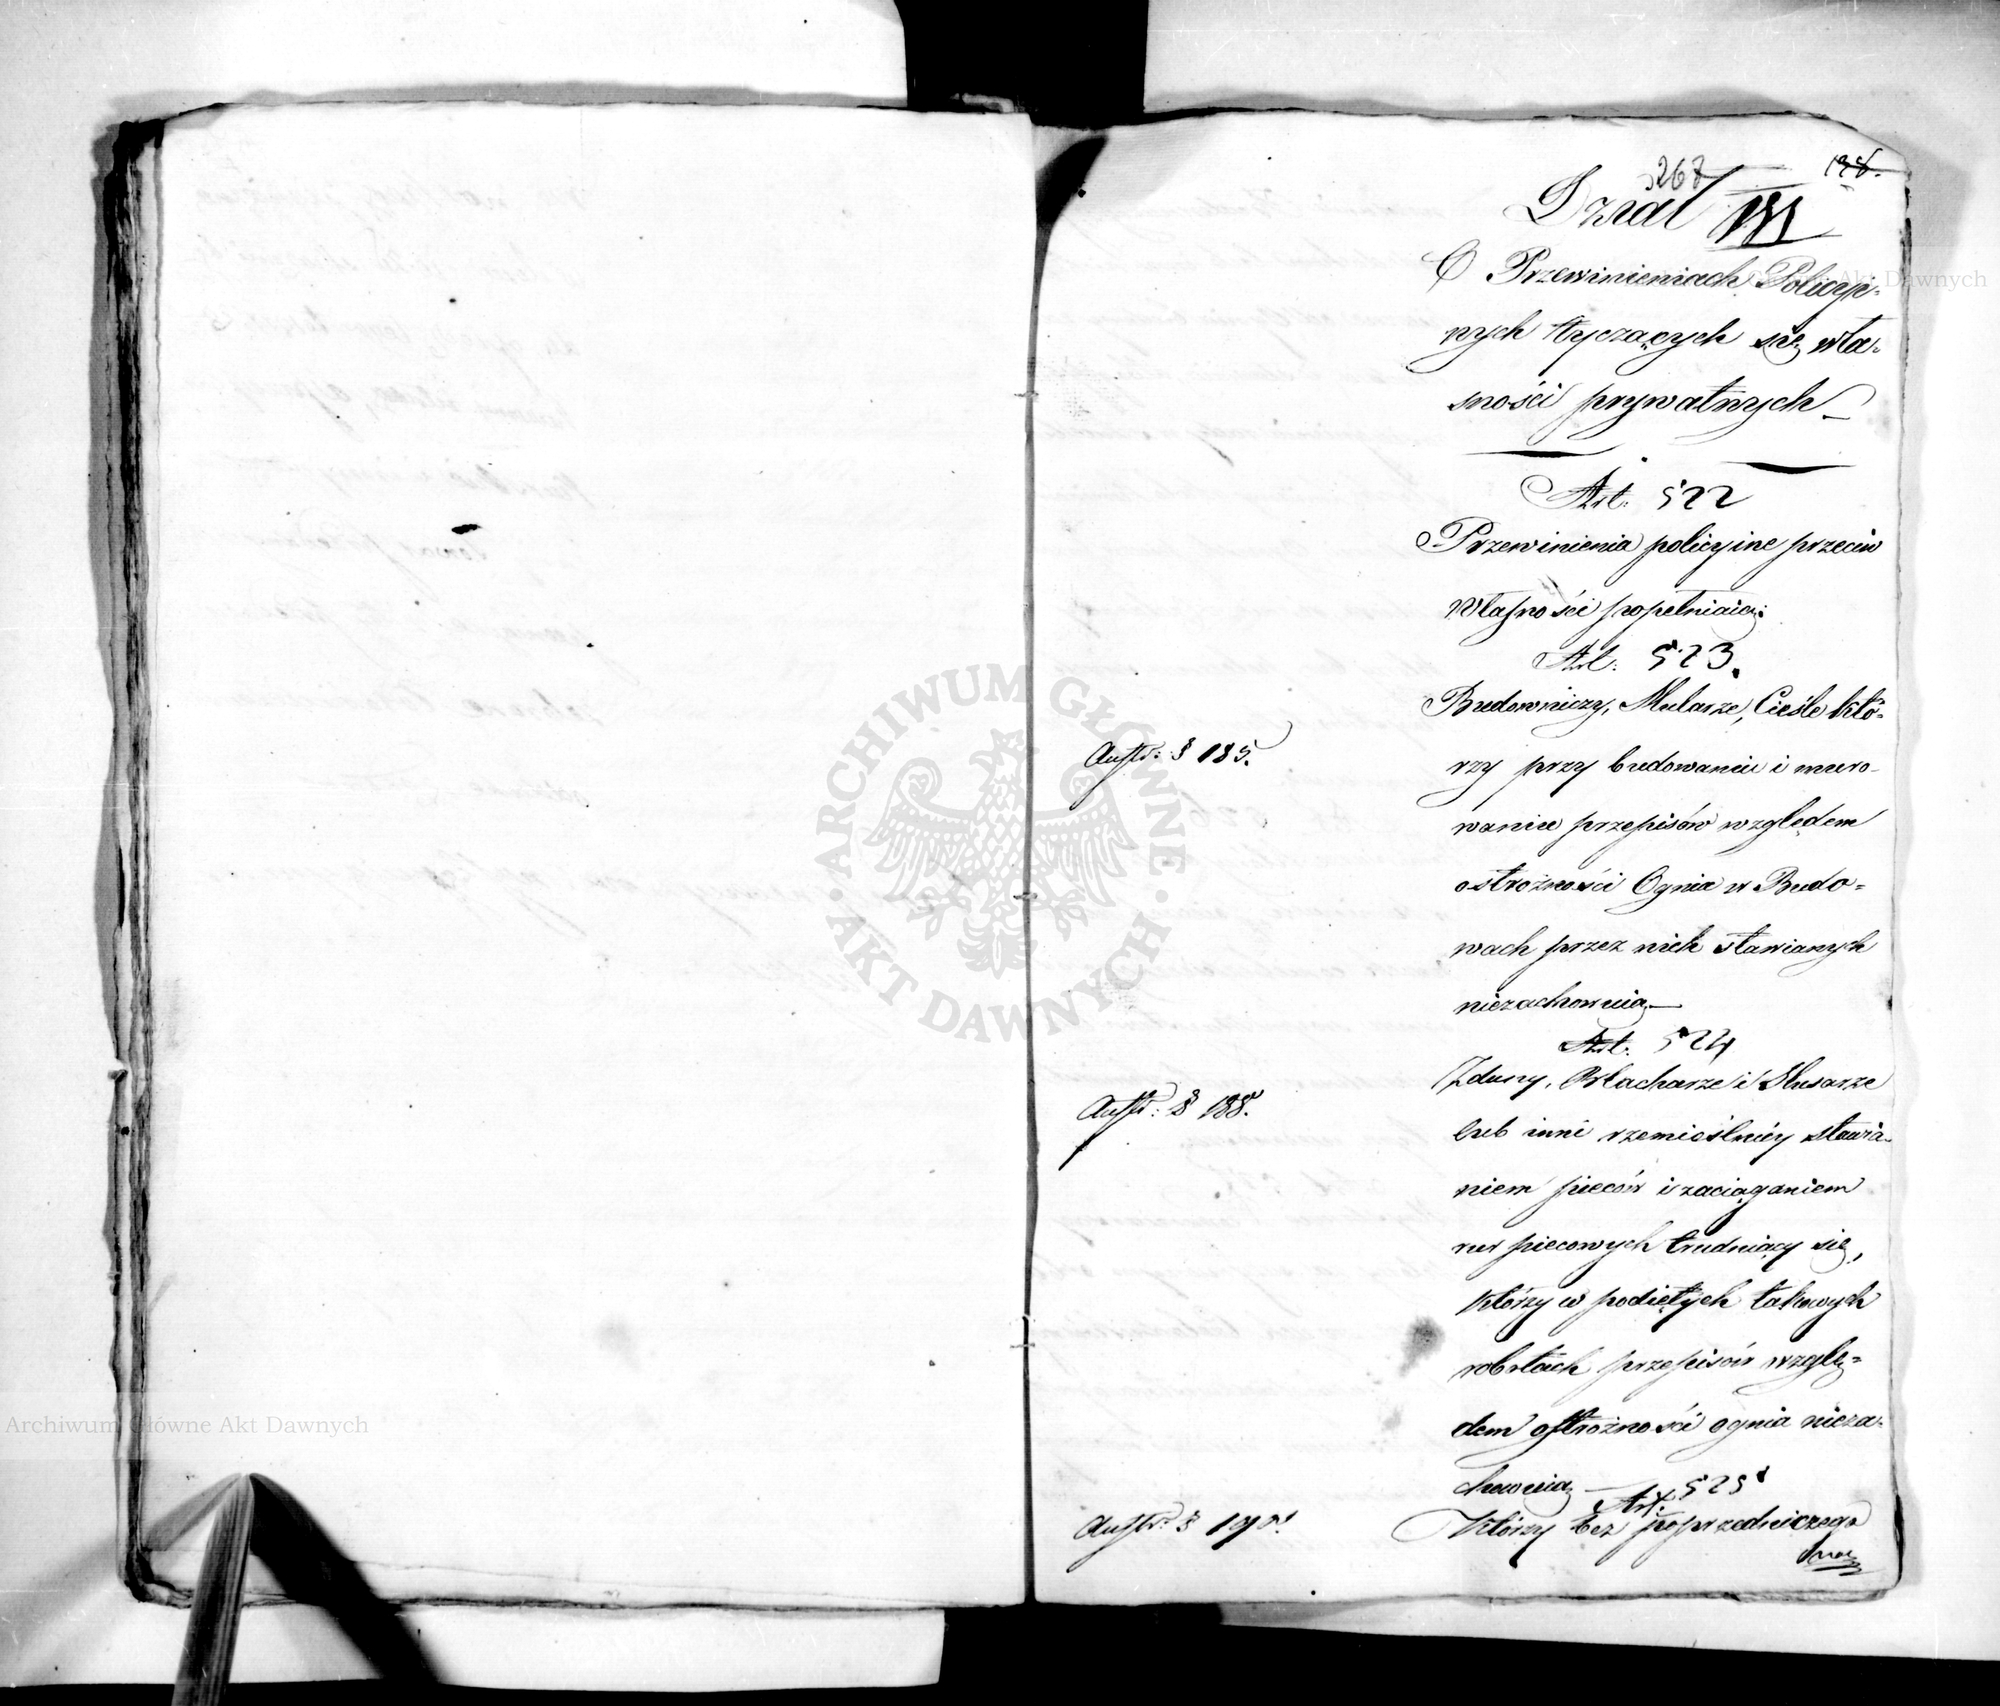 267
198.
Dział VII
O Przewinieniach Policyj-
nych tyczących się wła-
sności prywatnych
Art: 522
Przewinienia policyine przeciw
Własności popełniaią:
Art: 523.
Budowniczy, Mularze, Cieśle któ-
rzy przy budowaniu i muro-
waniu przepisów względem
ostrożności Ognia w Budo-
wach przez nich stawianych
niezachowuią
Austr: § 185.
Art: 524
Zduny, Blacharze i Slusarze
lub inni rzemieślnicy stawia-
niem pieców i zaciąganiem
rur piecowych trudniący się,
którzy w podiętych takowych
robotach przepisów wzglę-
dem ostrożności ognia nieza-
chowuią
Austr: § 188.
Art: 525
Którzy bez poprzedniczego
Austr: § 190.
ARCHIWUM GŁÓWNE AKT DAWNYCH
Archiwum Główne Akt Dawnych
Główne Akt Dawnych